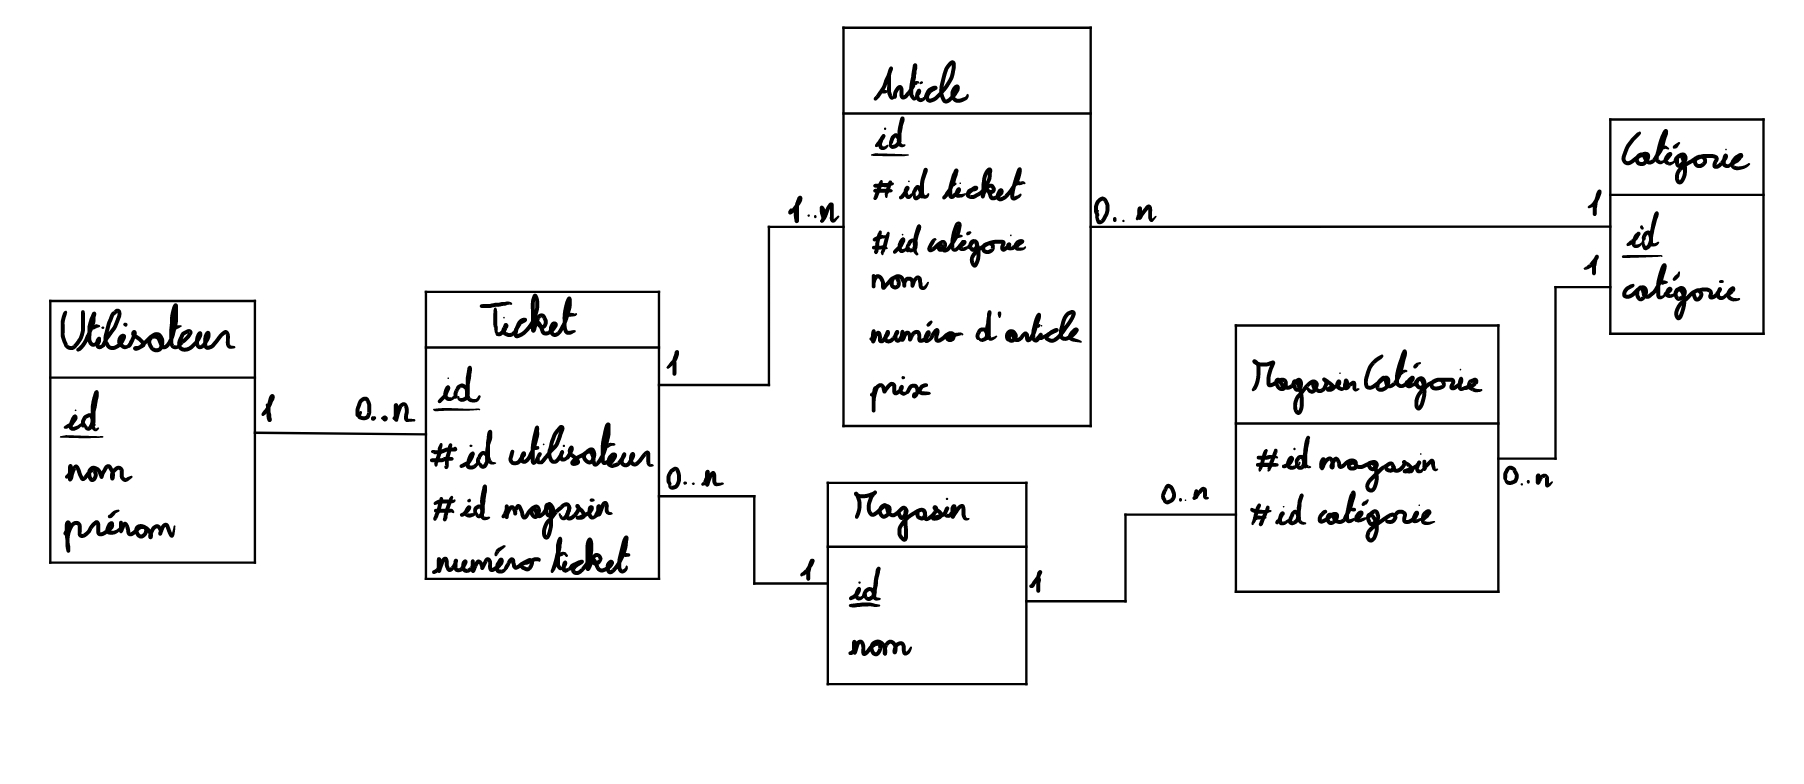 Utilisateur
id
nom
prénom
1
0..n
Ticket
id
#id utilisateur
#id magasin
numéro ticket
1
1..n
0..n
1
Article
id
#id ticket
#id catégorie
nom
numéro d'article
prix
0..n
1
Magasin
id
nom
1
0..n
Magasin Catégorie
#id magasin
#id catégorie
0..n
1
Catégorie
id
catégorie